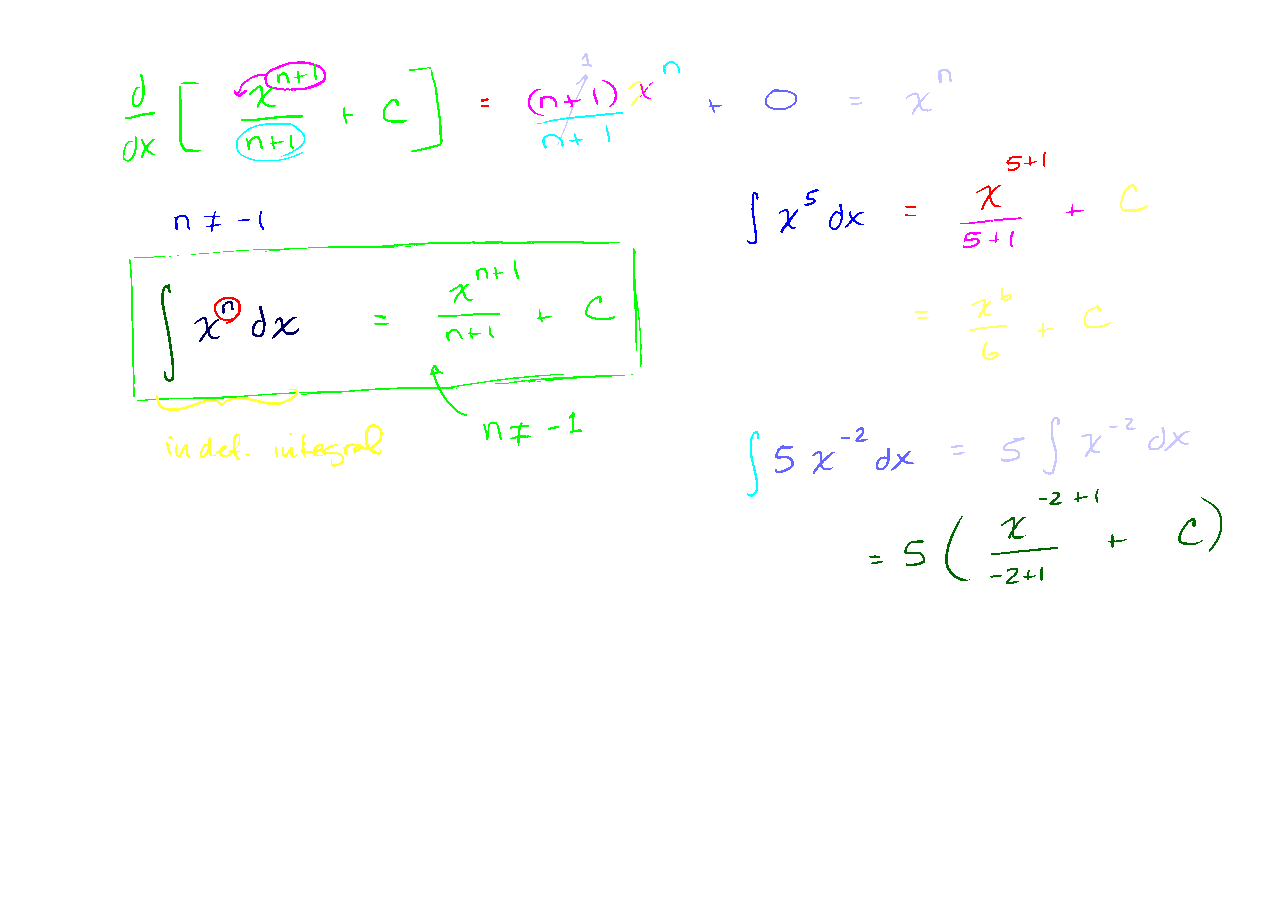 d/dx [ x^(n+1)/(n+1) + C ] = (n+1) x^n/(n+1) 1 + 0 = x^n
n ≠ -1
∫ x^n dx = x^(n+1)/(n+1) + C
n ≠ -1
indef. integral
∫ x^5 dx = x^(5+1)/(5+1) + C
= x^6/6 + C
∫ 5 x^(-2) dx = 5 ∫ x^(-2) dx
= 5 ( x^(-2+1)/(-2+1) + C )